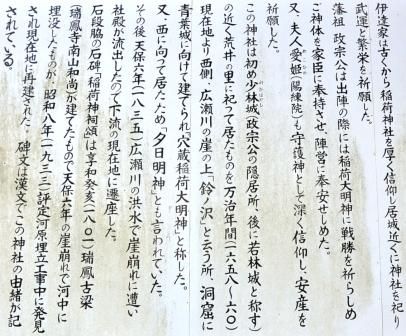 伊達家は古くから稲荷神社を厚く信仰し居城近くに神社を祀り
武運と繁栄を祈願した。
藩祖 政宗公は出陣の際には稲荷大明神に戦勝を祈らしめ
ご神体を家臣に奉持させ、陣営に奉安せしめた。
又、夫人愛姫(陽徳院)も守護神として深く信仰し、安産を
祈願した。
この神社は初め少林城(政宗公の隠居所、後に若林城と称す)
の近く荒井の里に祀って居たものを万治年間(一六五八〜六〇)
現在地より西側、広瀬川の崖の上「鈴ノ沢」と云う所、洞窟に
青葉城に向けて建てられ穴蔵稲荷大明神と称した。
又、西に向って居たため「夕日明神」とも言われていた。
その後 天保六年(一八三五)広瀬川の洪水で崖崩れに遭い
社殿が流出したので下流の現在地に遷座した。
石段脇の石碑「稲荷神祠頌は享和癸亥(一八〇一)瑞鳳寺古梁
瑞鳳寺南山和尚が建てたもので天保六年の崖崩れで河中に
埋没したものが、昭和八年(一九三三)評定河原埋立工事中に発見
され現在地に再建された。碑文は漢文でこの神社の由緒が記
されている。